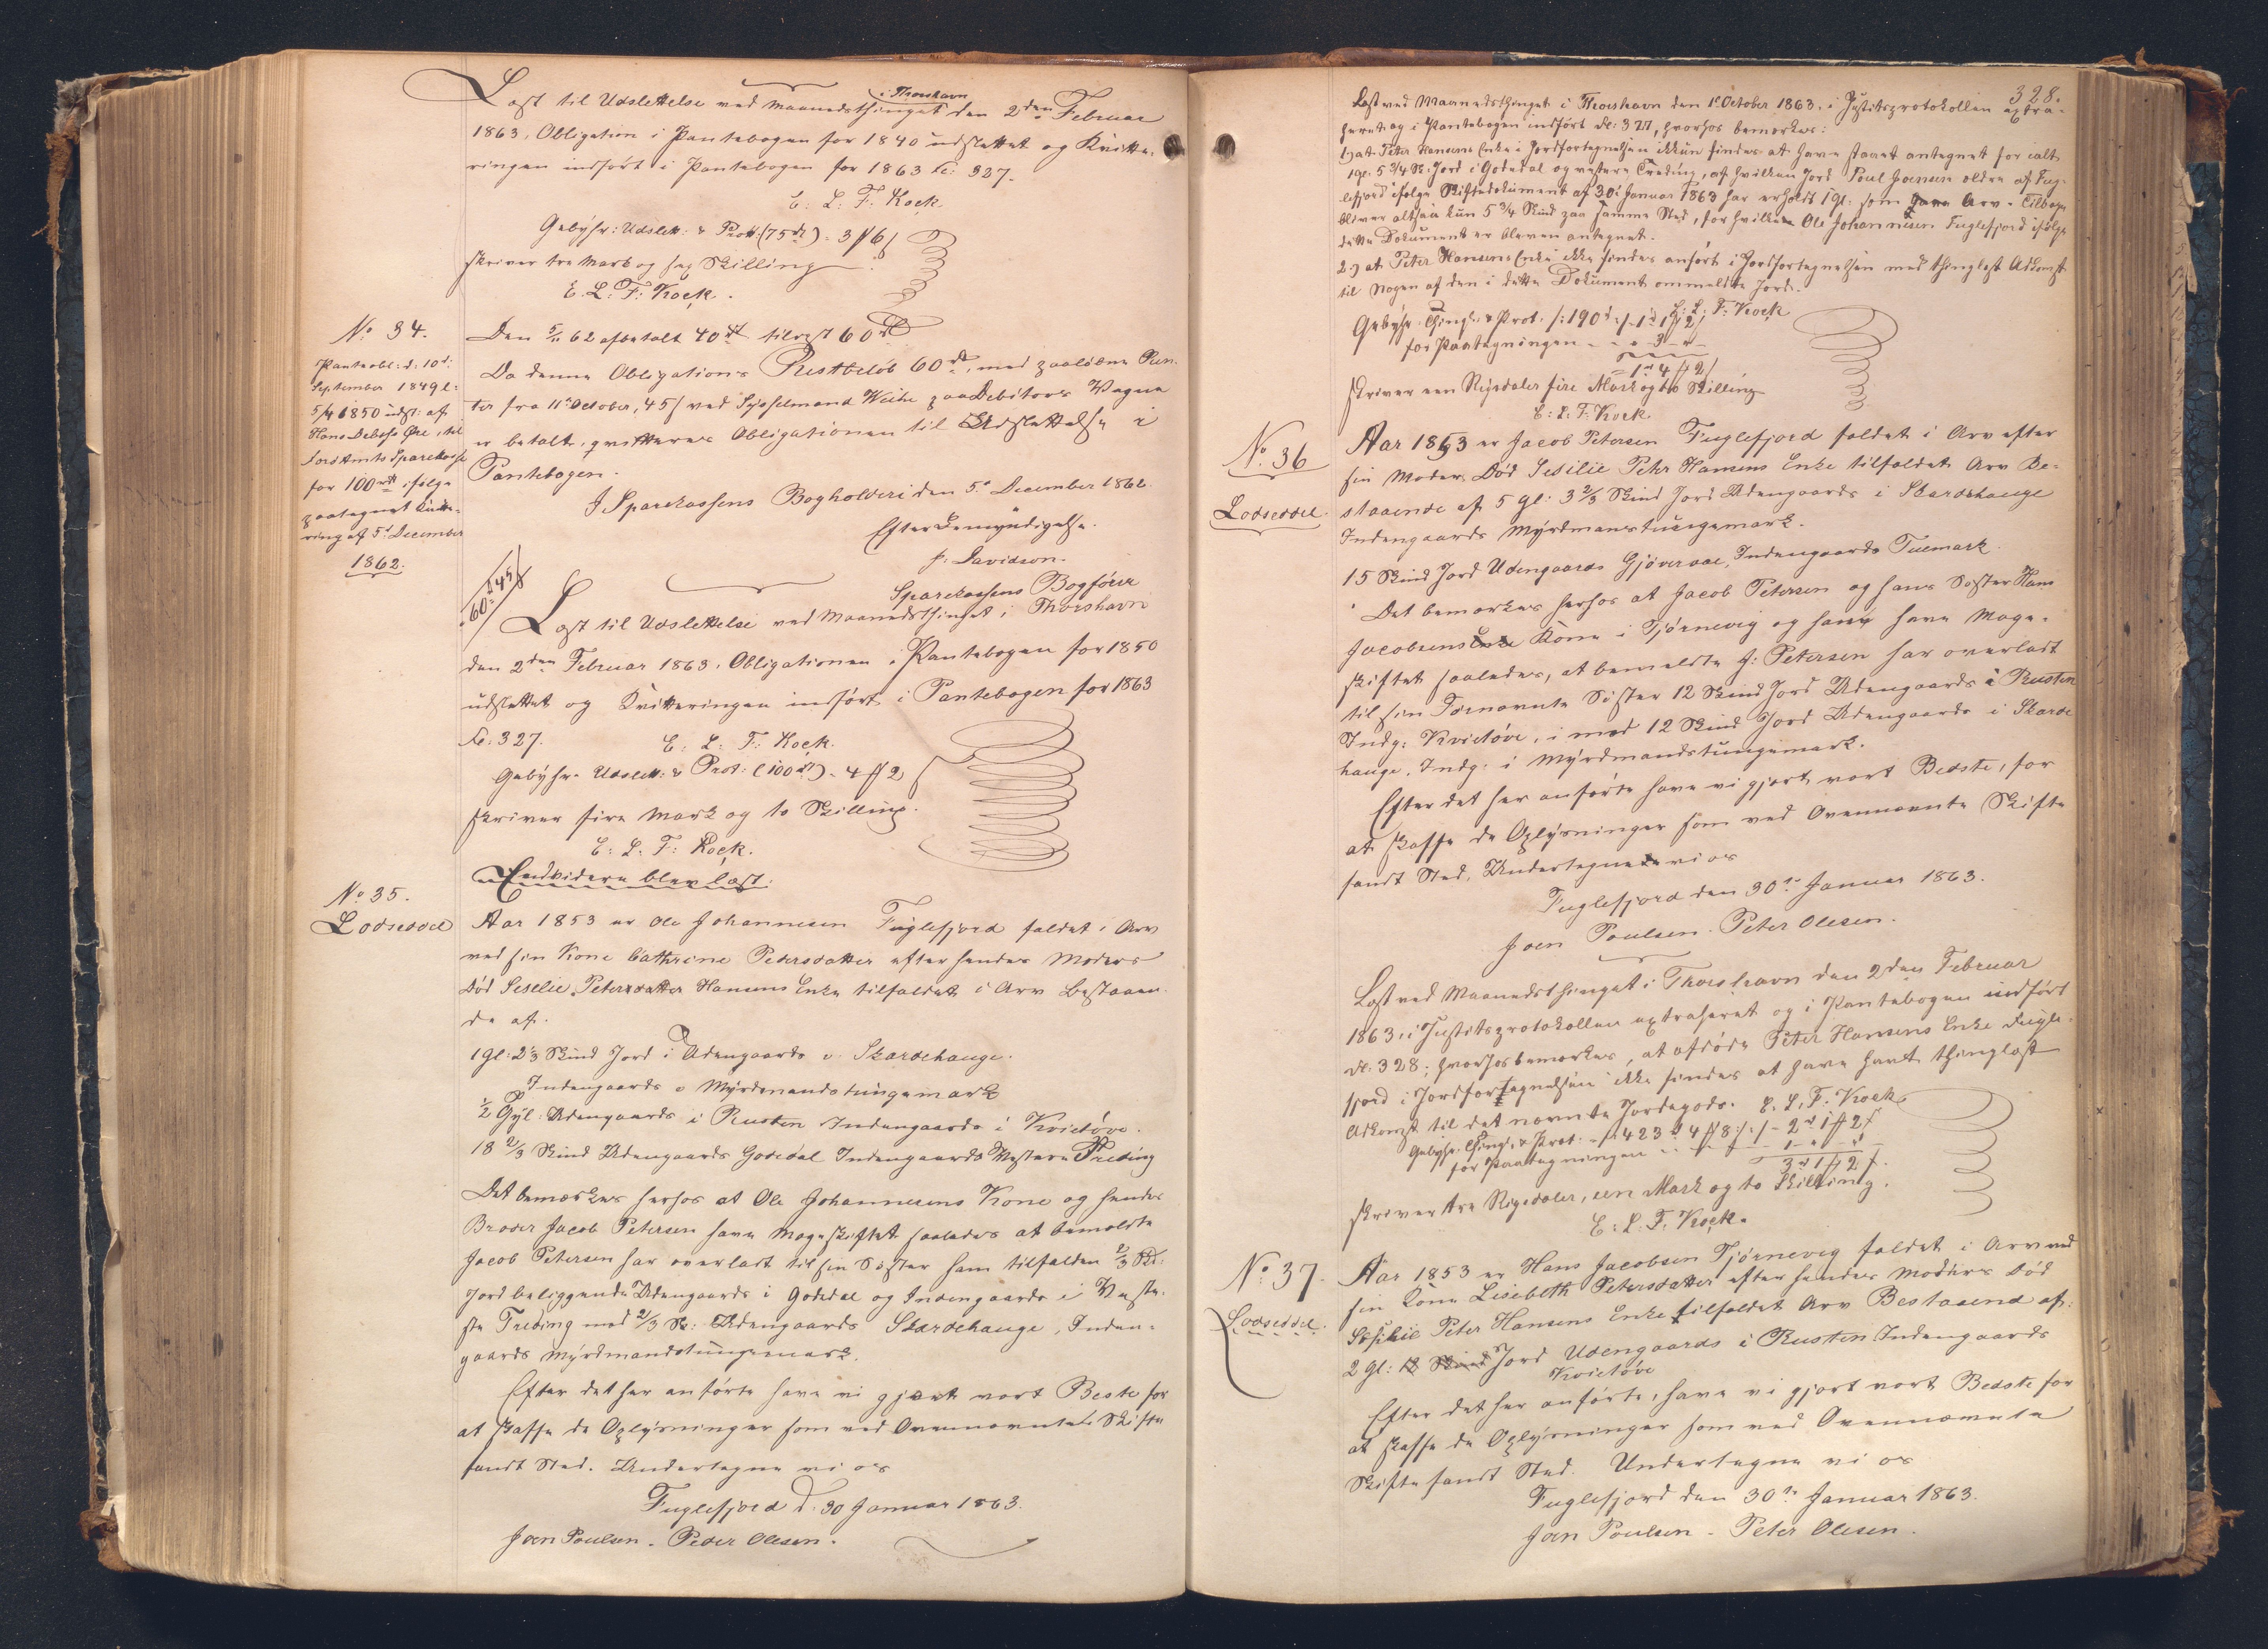 Læst til Udslettelse ved Maanedsthinget i Thorshavn den 2den Februar
1863. Obligation i Pantebogen for 1840 udslettet og Kvitte-
ringen indført i Pantebogen for 1863 Fo: 327.
E: L: F: Kock.
Gebyhr: Udslett: & Prot: (75 rd) = 3 # 6 ſ
skriver tre Mark og sex Skilling
E. L. F: Kock.
No 34.
Panteobl: d: 10d:
September 1849 l:
5/4 1850 udst: af
Hans Debess Øre, til
Færø Amts Sparekasse
for 100 rd ifølge
paategnet Kvitte-
ring af 5d December
1862.
Den 5/11 62 afbetalt 40 rd tilrest 60 rd
Da denne Obligations Restbeløb 60 rd, med paaløbne Ren-
ter fra 11te October, 45 ſ ved Sysselmand Weihe paa Debitors Vegne
er betalt, qvitteres Obligationen til Udslettelse i
Pantebogen.
I Sparekassens Bogholderi den 5te December 1862.
Efter Bemyndigelse.
J. Davidson.
Sparekassens Bogfører
60 rd 45 ſ
Læst til Udslettelse ved Maanedsthinget i Thorshavn
den 2den Februar 1863. Obligationen i Pantebogen for 1850
udslettet og Kvitteringen indført i Pantebogen for 1863
Fo: 327. E. L. F: Kock.
Gebyhr. Udslett: & Prot: (100 rd) = 4 # 2 ſ
skriver fire Mark og to Skilling.
E: L. F: Kock.
Endvidere blev læst:
No 35.
Lodseddel
Aar 1853 er Ole Johannesen Fuglefjord faldet i Arv
ved sin Kone Cathrine Pedersdatter efter hendes Moders
Død Seselie Petersdatter Hansens Enke tilfaldet i Arv Bestaaen-
de af.
1 Gl: 2 1/3 Skind Jord i Udengaards i Skardehauge.
Indengaards i Myrdmandstungemark
1/2 Gyl: Udengaards i Rusten Indengaards i Kvietøve.
18 2/3 Skind Udengaards Godedal Indengaards Vestere Treding
Det bemærkes herhos at Ole Johannesens Kone og hendes
Broder Jacob Petersen have Mageskiftet saaledes at bemeldte
Jacob Petersen har overladt til sin Søster ham tilfalden 2/3 Sk:
Jord beliggende Udengaards i Godedal og Indengaards i Veste-
ste Treding mod 2/3 Sk: Udengaards Skardehauge, Inden-
gaards Myrdmandstungemark.
Efter det her anførte have vi gjort vort Beste for
at skaffe de Oplysninger som ved Ovennævnte Skifte
fandt Sted. Undertegne vi os
Fuglefjord d. 30 Januar 1863.
Joen Poulsen. Peder Olesen.
328.
Læst ved Maanedsthinget i Thorshavn den 1te October 1863. i Justitsprotokollen extra-
heret og i Pantebogen indført Fo: 327, hvorhos bemærkes:
1) at Peter Hansens Enke i Jordfortegnelsen ikkun findes at have staaet antegnet for ialt
1 Gl: 5 3/4 Sk: Jord i Godedal og vestere Treding, af hvilken Jord Poul Joensen ældre af Fug-
lefjord ifølge Skiftedokument af 30te Januar 1863 har erholdt 1 Gl: som Arv. Tilbage
bliver altsaa kun 5 3/4 Skind paa samme Sted, for hvilken Ole Johannesen Fuglefjord ifølge
dette Dokument er bleven antegnet.
2) at Peter Hansens Enke ikke findes anført i Jordfortegnelsen med thinglæst Adkomst
til Nogen af den i dette Dokument ommeldte Jord.
E: L: F: Kock
Gebyhr. Thingl: & Prot. /: 190 rd :/ - 1 rd 1 # 2 ſ
for Paategningen - - " 3 - " -
= 1 rd 4 # 2 ſ
skriver een Rigsdaler fire Mark og to Skilling
E: L. F: Kock.
No. 36
Lodseddel.
Aar 1853 er Jacob Petersen Fuglefjord faldet i Arv efter
sin Moders Død Sesilie Petr Hansens Enke tilfaldet Arv Be-
staaende af 5 Gl: 3 2/3 Skind Jord Udengaards i Skardehauge
Indengaards Myrdmanstungemark.
15 Skind Jord Udengaards Gjøveraae, Indengaards Tuemark.
Det bemærkes herhos at Jacob Petersen og hans Søster Hans
Jacobsens Kone i Tjørnevig og hans have Mage-
skiftet saaledes, at bemeldte J: Petersen har overladt
til sin Førnævnte Søster 12 Skind Jord Udengaards i Rusten
Indg: Kvietøve, i mod 12 Skind Jord Udengaards i Skarde
hauge, Indg: i Myrdmandstungemark.
Efter det her anførte have vi gjort vort Bedste, for
at skaffe de Oplysninger som ved Ovennævnte Skifte
fandt Sted, Undertegne vi os
Fuglefjord den 30te Januar 1863.
Joen Poulsen. Peter Olesen.
Læst ved Maanedsthinget i Thorshavn den 2den Februar
1863, i Justitsprotokollen extraheret og i Pantebogen indført
Fo: 328; hvorhos bemærkes, at afdøde Peter Hansens Enke Fugle-
fjord i Jordfortegnelsen ikke findes at have havt thinglæst
Adkomst til det nævnte Jordegods. E. L. F. Kock
Gebyhr. Thingl. & Prot. - /: 423 rd 4 # 8 ſ :/ - 2 rd 1 # 2 ſ
for Paategningen - - - 1 - " - "
3 rd 1 # 2 ſ.
skriver tre Rigsdaler, een Mark og to Skilling.
E: L. F. Kock.
No: 37.
Lodseddel.
Aar 1853 er Hans Jacobsen Tjørnevig faldet i Arv ved
sin Kone Lisebeth Petersdatter efter hendes Moders Død
Sesilie Peter Hansens Enke tilfaldet Arv Bestaaend af:
2 Gl: 12 Skind Jord Udengaards i Rusten Indengaards
Kvietøve
Efter det her anførte, have vi gjort vort Bedste for
at skaffe de Oplysninger som ved Ovennævnte
Skifte fandt Sted. Undertegne vi os
Fuglefjord den 30te Januar 1863.
Joen Poulsen - Peter Olesen.